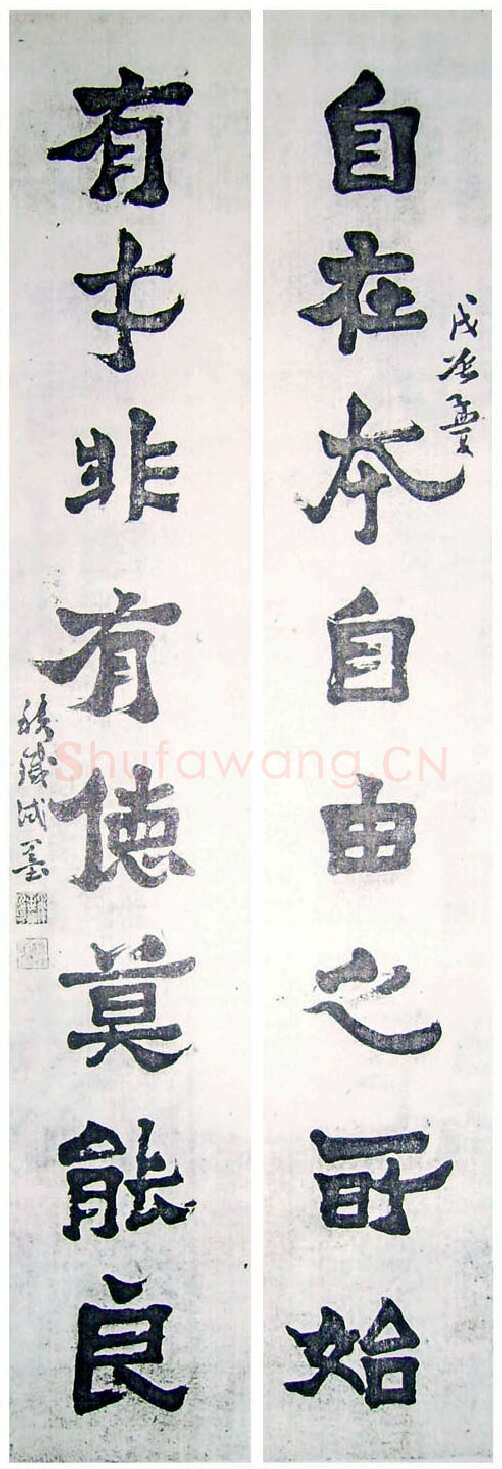 自在本自由之所始
孟夏
有才非有德莫能良
Shufawang.CN